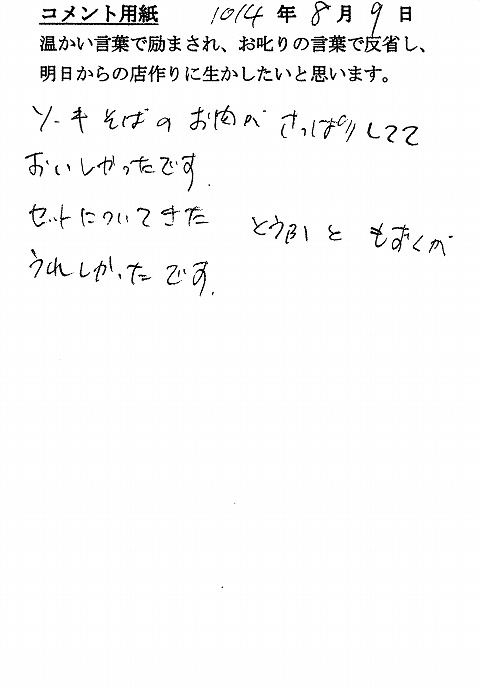 コメント用紙 1014年8月9日
温かい言葉で励まされ、お叱りの言葉で反省し、
明日からの店作りに生かしたいと思います。
ソーキそばのお肉がさっぱりしてて
おいしかったです.
セットについてきた とうふと もずくが
うれしかったです.